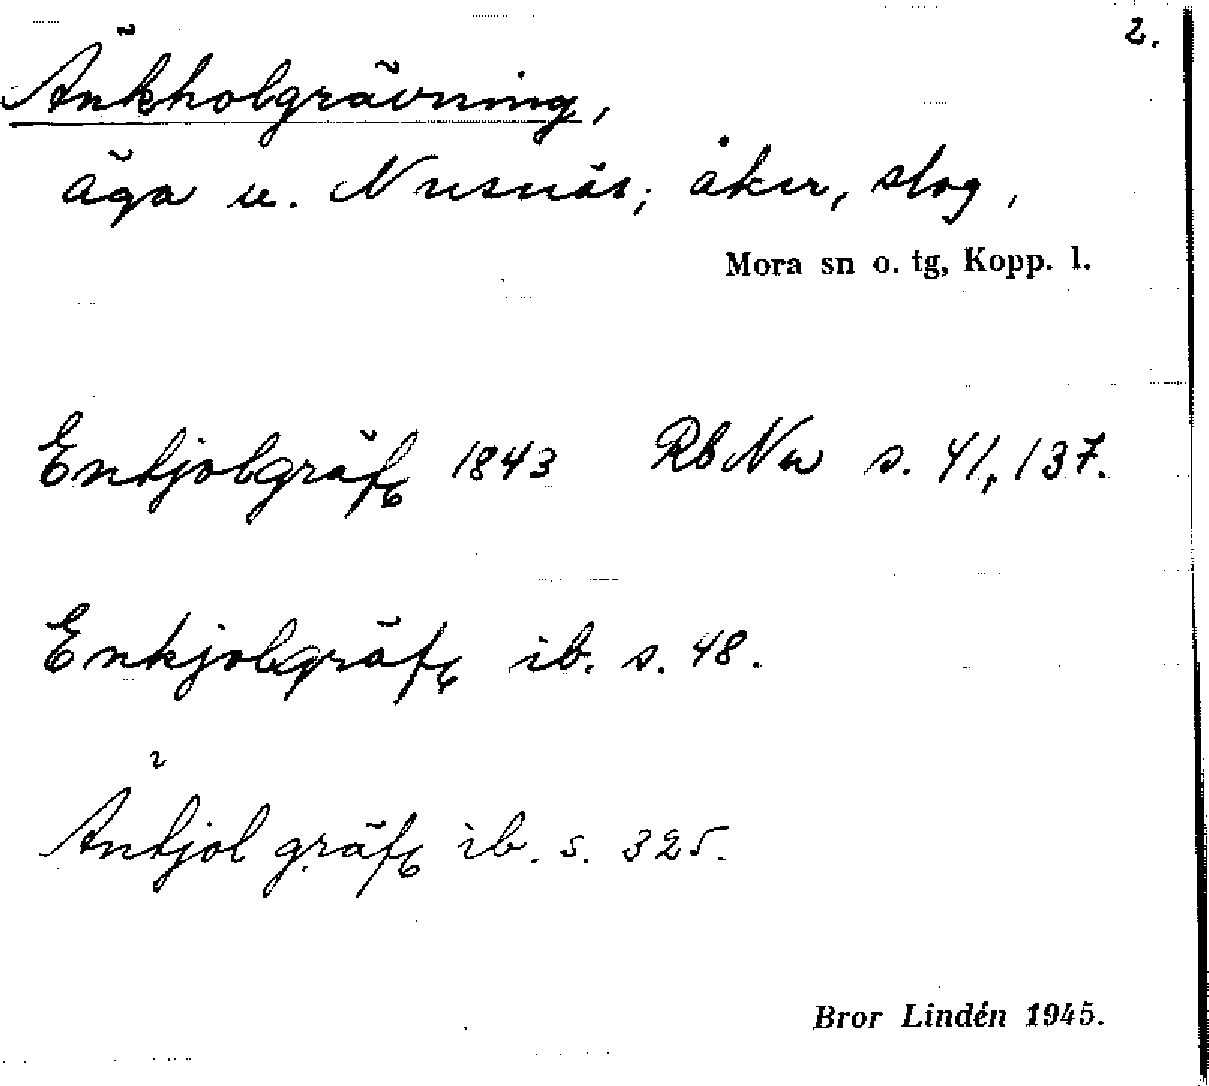 2.
Änkholgrävning,
äga u. Nusnäs; åker, slog,
Mora sn o. tg, Kopp. l.
Enkjolgräf 1843 Rb Nu s. 41, 137.
Enkjolgräf ib. s. 48.
Änkjol gräf ib. s. 325.
Bror Lindén 1945.